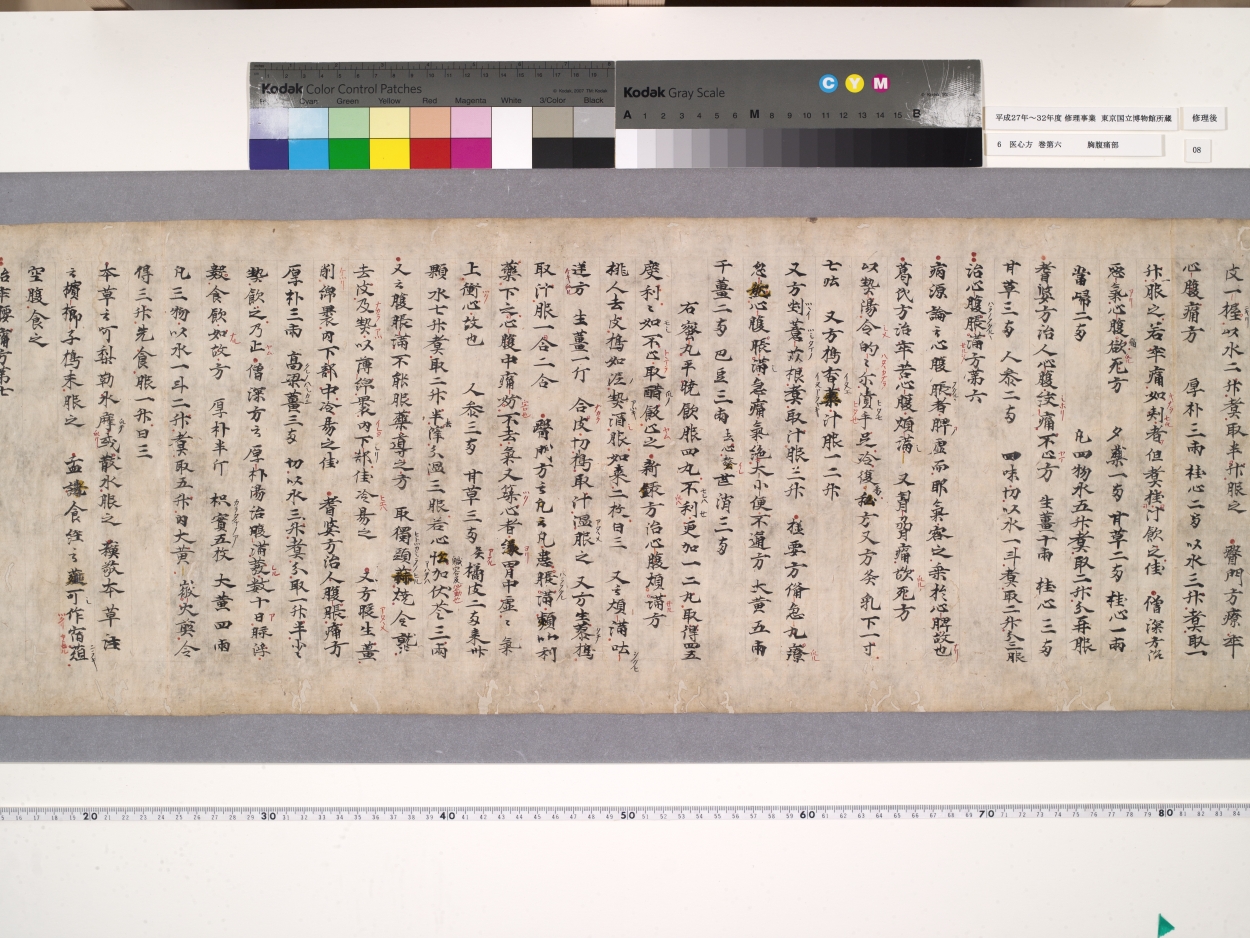 Kodak Color Control Patches
Cyan Green Yellow Red Magenta White 3/Color Black
Kodak Gray Scale
C Y M
A 1 2 3 4 5 6 M 8 9 10 11 12 13 14 15 B
平成27年～32年度 修理事業 東京国立博物館所蔵
修理後
6 医心方 巻第六 胸腹痛部
08
皮一握以水二升煮取半升服之 醫門方療卒
心腹痛方 厚朴三兩 桂心二分 以水三升煮取一
升服之 若卒痛如刺者但煮桂汁飲之佳 僧深方治
惡氣心腹欲死方 甘草二分 桂心一兩
當歸二分 凡四物水五升煮取二升分再服
耆婆方治人心腹痛不止方 生薑十兩 桂心三分
甘草三分 人參二分 四味切以水一斗煮取二升分三服
治心腹脹滿方第六
病源論云心腹脹者脾虛而邪氣客之乘於心脾故也
葛氏方治卒苦心腹煩滿 又胷脅痛欲死方
以熱湯令灼灼尓漬手足冷復 方 又方灸乳下一寸
七壯 又方搗香 汁服一二升
又方 煮取汁服二升 方備急丸療
忽 心腹脹滿急痛氣絶大小便不通方 大黃五兩
干薑二分 巴豆三兩 去心 芒消三分
右蜜丸平晚飲服四丸不利更加一二丸取得四五
度利利如不 心之 新録方治心腹煩滿方
桃人去皮搗如泥熱酒服如棗二枚日三 又云煩滿 
逆方 生薑一斤 合皮切搗取汁溫服之 又方生 搗
取汁服一合二合 醫門方云凡云凡患脹滿 利
藥下之心腹中痛 不去氣又 心者 胃中虛虛氣
上衝心故也 人參三分 甘草三分 橘皮二分
顆水七升煮取二升半 分溫三服若心 加伏苓三兩
又云腹脹滿不能服藥導之方 取獨頭蒜燒令熟
去皮及熱以薄綿裹內下部佳冷易之 又方服生薑
削綿裹內下部中冷易之佳 耆婆方治人腹脹痛方
厚朴三兩 高梁薑三分 切以水三升煮分取一升半
熱飲之乃止 僧深方云厚朴湯治腹滿發數十日脉浮
數食飲如故方 厚朴半斤 枳實五枚 大黃四兩
凡三物以水一斗二升煮取五升內大黃 火煎令
得三升先食服一升日三
本草云呵梨勒 或散水服之 本草注
云檳榔子搗末服之 孟詵食經云 可作
空腹食之
治卒腰痛方第七